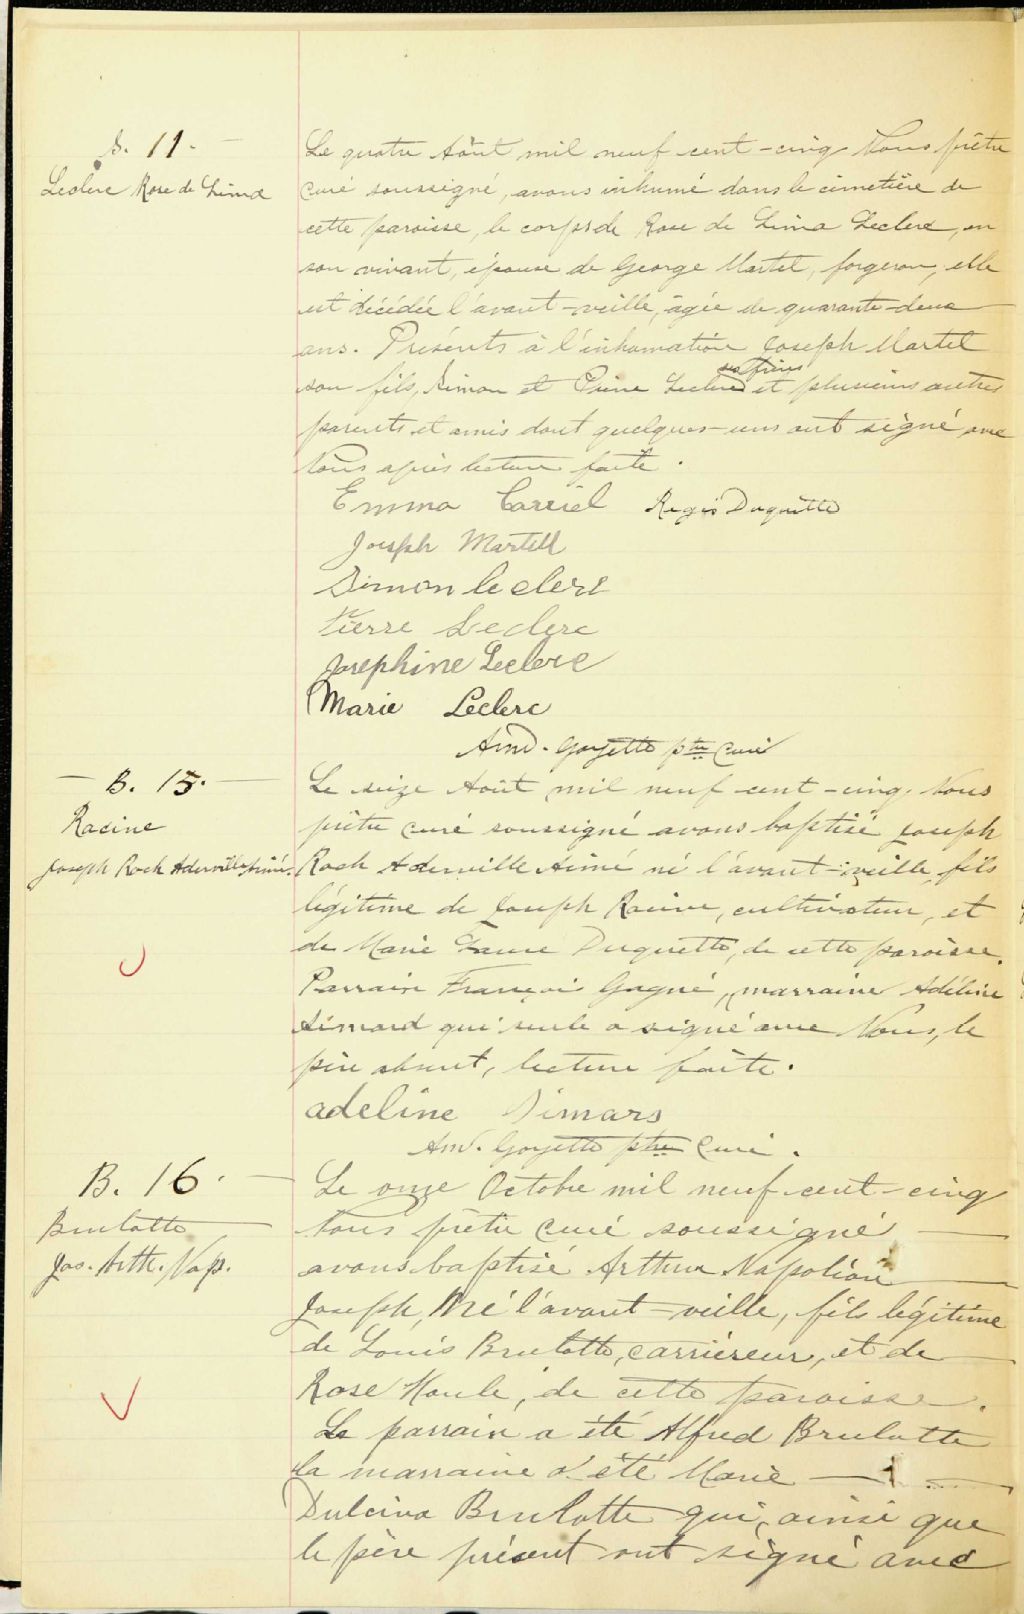 S. 11.
Leclerc Rose de Lima
Le quatre Août mil neuf cent-cinq Nous prêtre
curé soussigné, avons inhumé dans le cimetière de
cette paroisse, le corps de Rose de Lima Leclerc, en
son vivant, épouse de George Martel, forgeron, elle
est décédée l'avant-veille, âgée de quarante-deux
ans. Présents à l'inhumation Joseph Martel
ses frères
son fils, Simon et Pierre Leclerc et plusieurs autres
parents et amis dont quelques-uns ont signé avec
Nous après lecture faite.
Emma Carriel Regis Duquette
Joseph Martell
Simon leclerc
Pierre Leclerc
Josephine Leclerc
Marie Leclerc
Amd. Goyette ptre Curé
B. 15.
Racine
Joseph Roch Aderville Aimé.
Le seize Août mil neuf cent-cinq. Nous
prêtre curé soussigné avons baptisé Joseph
Roch Aderville Aimé né l'avant-veille, fils
légitime de Joseph Racine, cultivateur, et
de Marie Duquette, de cette paroisse.
Parrain François Gagné, marraine Adéline
Simard qui seule a signé avec Nous, le
père absent, lecture faite.
adeline Simars
Am. Goyette ptre Curé.
B. 16.
Brulotte
Jos. Arth. Nap.
Le onze Octobre mil neuf-cent-cinq
Nous prêtre curé soussigné
avons baptisé Arthur Napoléon
Joseph, Né l'avant-veille, fils légitime
de Louis Brulotte, carriéreur, et de
Rose Houle, de cette paroisse.
Le parrain a été Alfred Brulotte
la marraine a été Marie
Dulcina Brulotte qui, ainsi que
le père présent ont signé avec